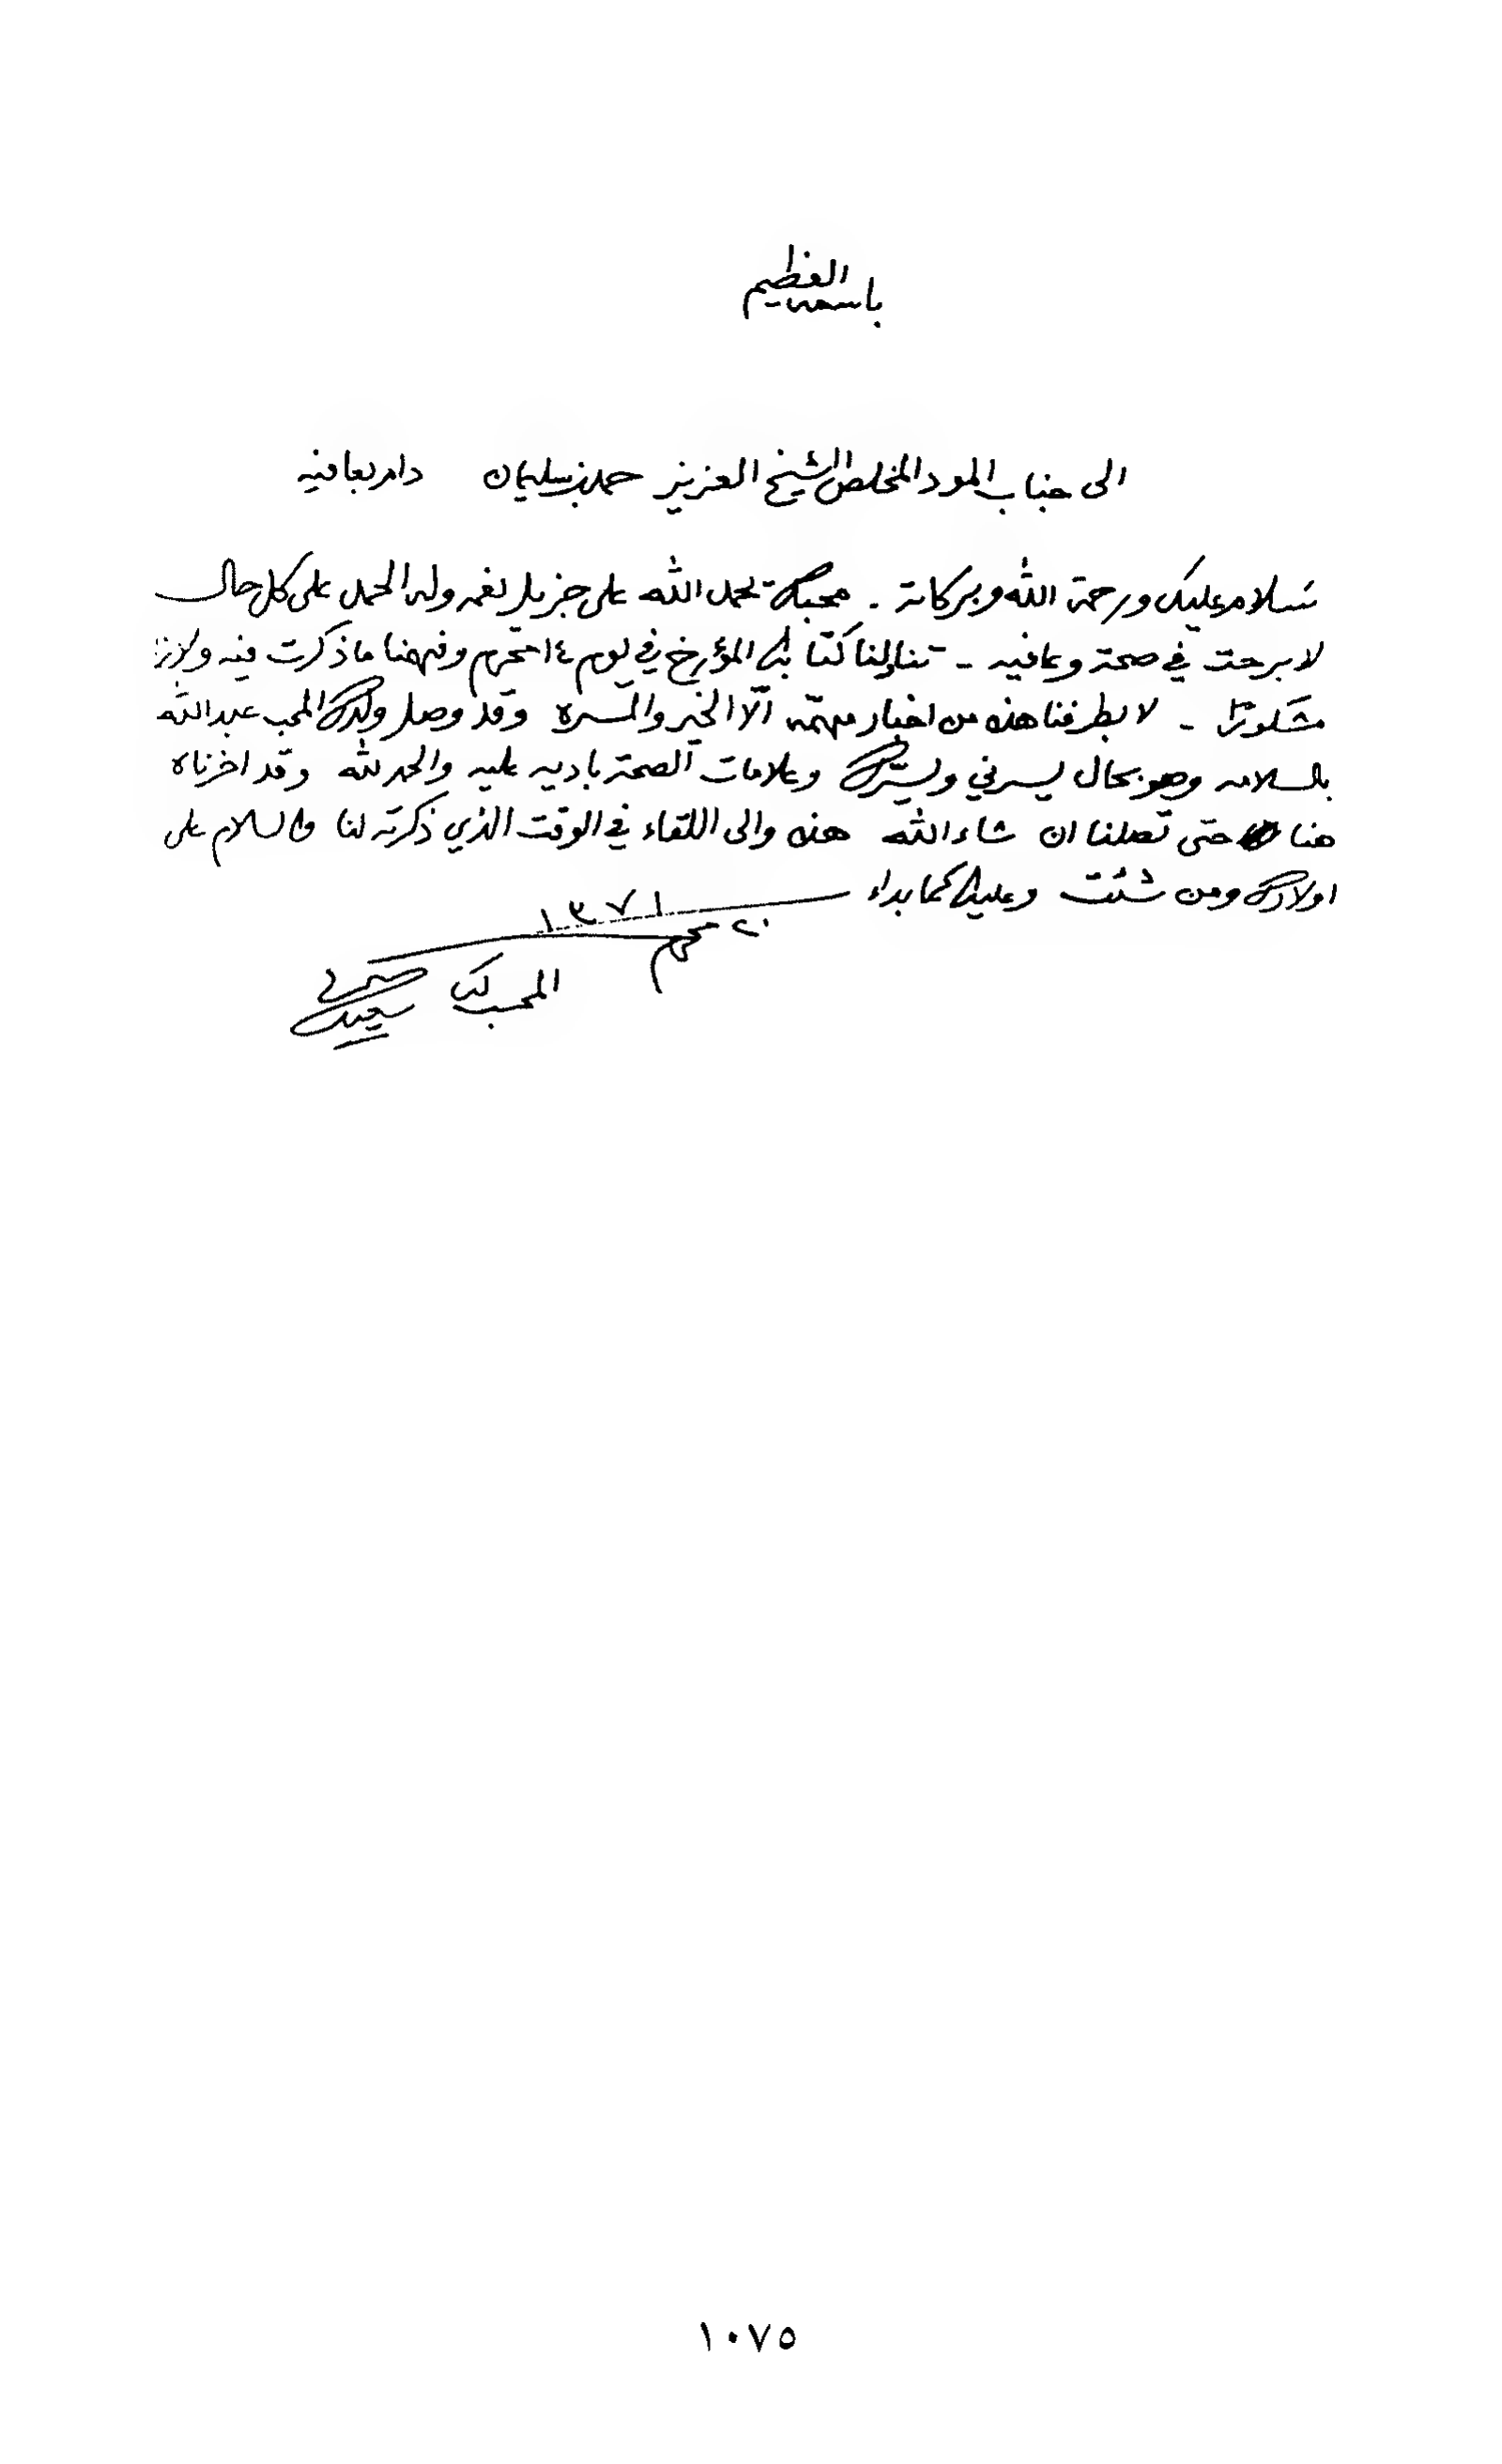 باسمه العظيم
الى جناب المود المخلص الشيخ العزيز حمد بن سليمان دام بعافيه
سلام عليك ورحمة الله وبركاته . محبك يحمد الله على جزيل نعمه وله الحمد على كل حال
لا برحت في صحة وعافيه - تناولنا كتابك المؤرخ في يوم ١٤ محرم وفهمنا ما ذكرت فيه ولازلت
مشكورًا - لا بطرفنا هذه من اخبار مهمّه الّا الخير والمسره وقد وصل ولدك المحب عبدالله
بالسلامه وهو بحال يسرني ويسرّك وعلامات الصحة باديه عليه والحمد لله وقد اخرناه
هنا حتى تصلنا ان شاء الله هذه والى اللقاء في الوقت الذي ذكرته لنا والسلام على
اولادك ومن شئت وعليك كما بداء
٢٠ محرم ١٣٧١
المحب لك
١٠٧٥